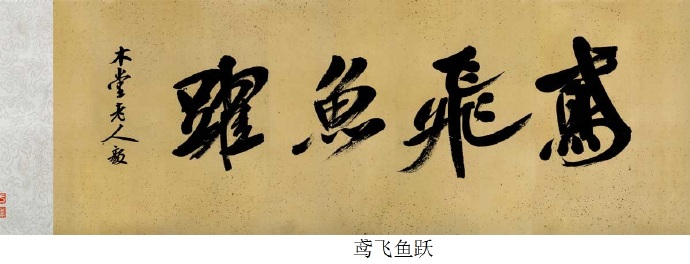 鳶飛魚躍
木堂老人毅
鸢飞鱼跃